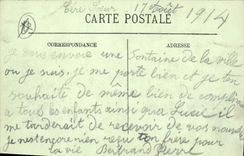 Chère Sœur 17 Août 1914
CARTE POSTALE
CORRESPONDANCE ADRESSE
je vous envoie une Fontaine de la ville
ou je suis, je me porte bien et je
souhaite de même bien de
a tous les enfants ainsi qua
me tarderait de recevoir de vos nouv
je nest encore rien reçu ton frère pour
la vie Bertrand Pierre